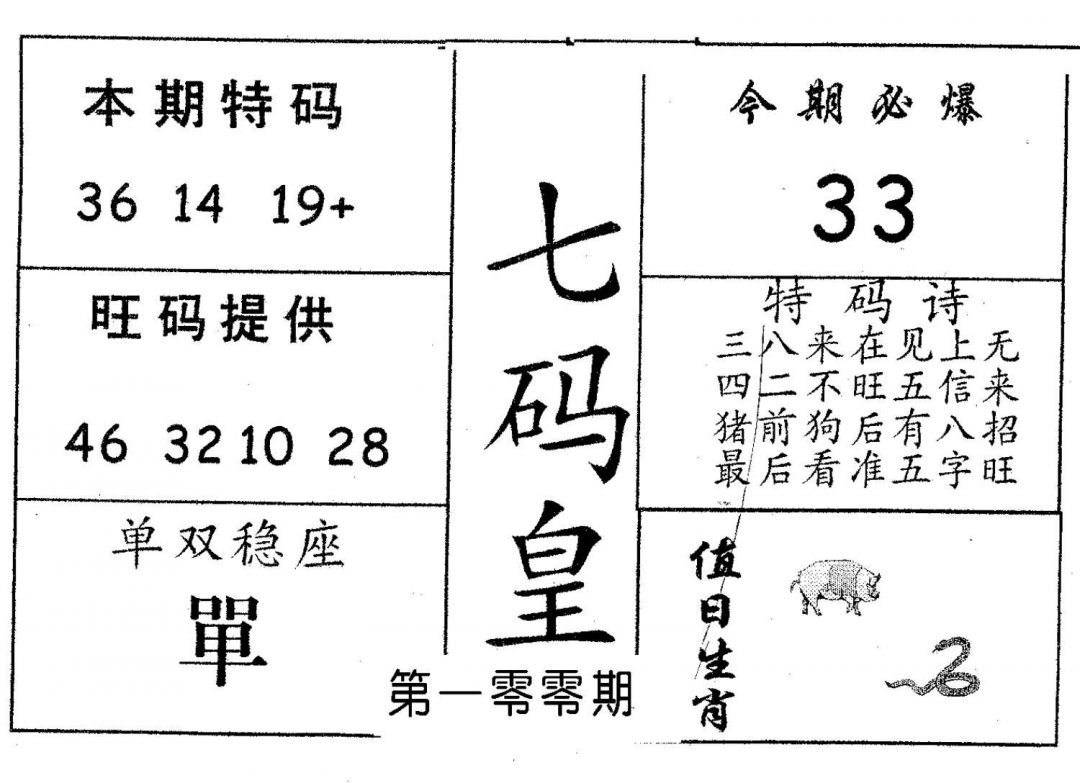 本期特码
36 14 19+
旺码提供
46 32 10 28
单双稳座
單
七码皇
第一零零期
今期必爆
33
特码诗
三八来在见上无
四二不旺五信来
猪前狗后有八招
最后看准五字旺
值日生肖